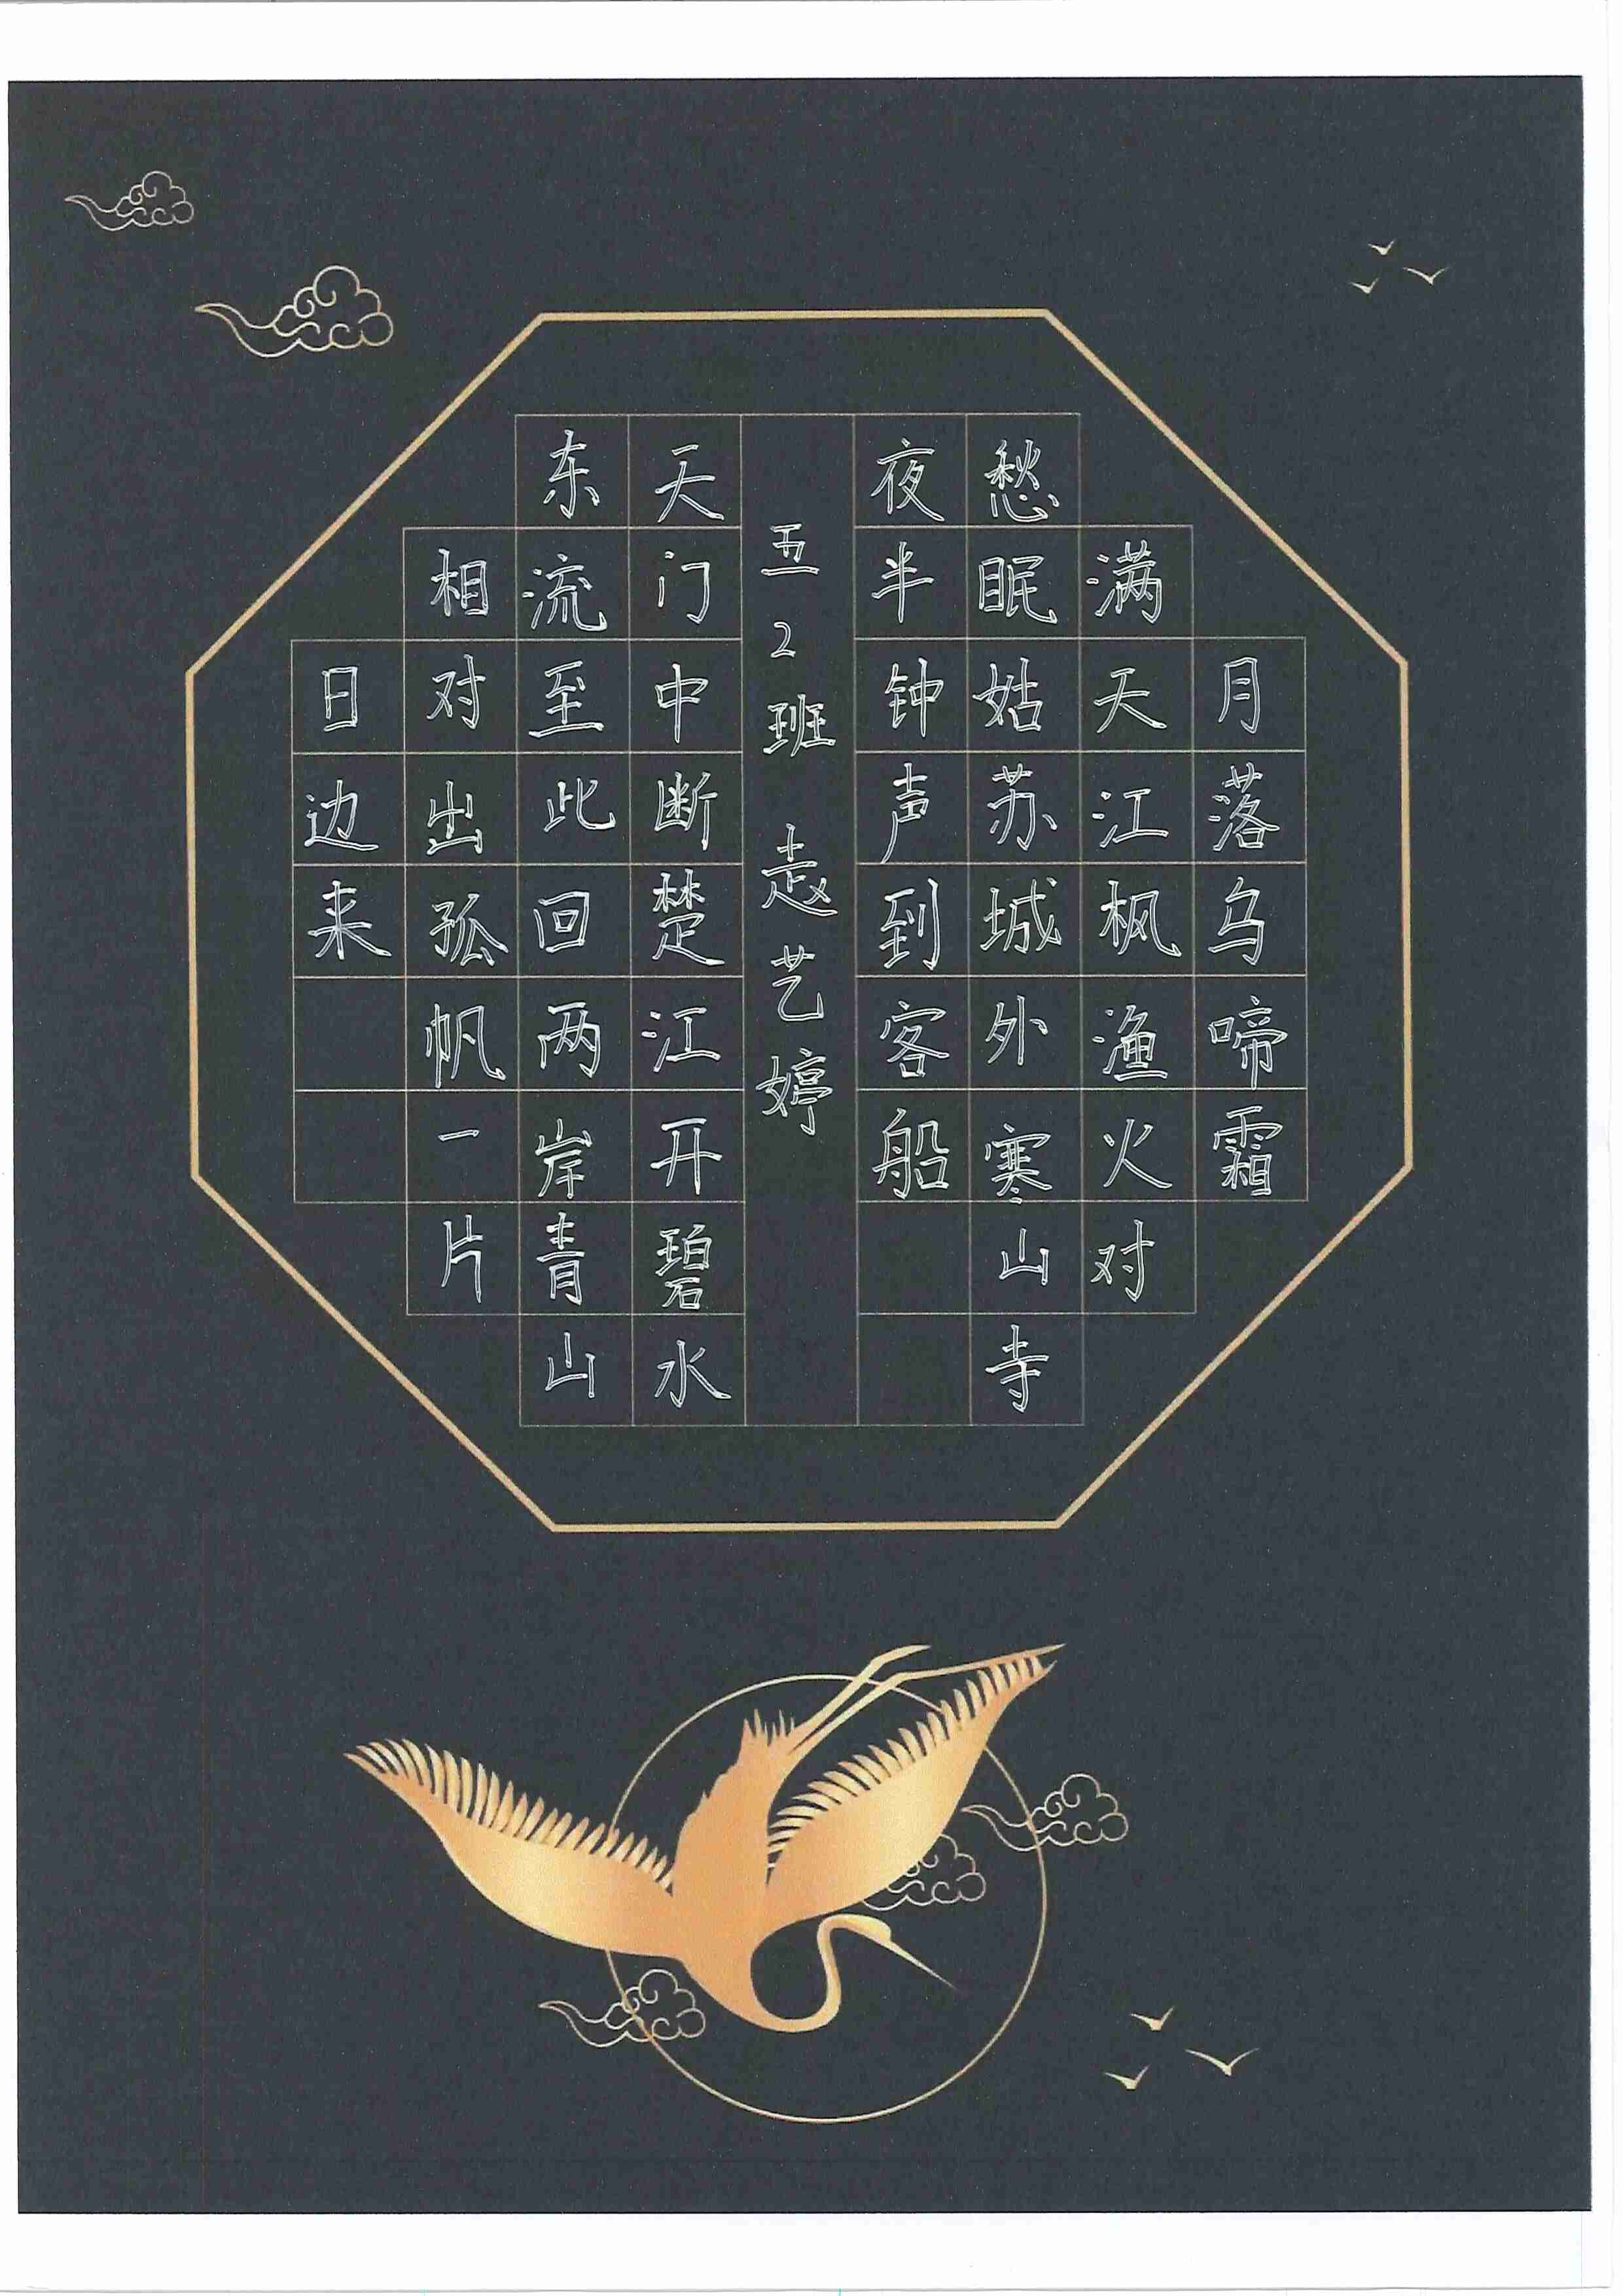 月落乌啼霜
满天江枫渔火对
愁眠姑苏城外寒山寺
夜半钟声到客船
五2班 赵艺婷
天门中断楚江开碧水
东流至此回两岸青山
相对出孤帆一片
日边来